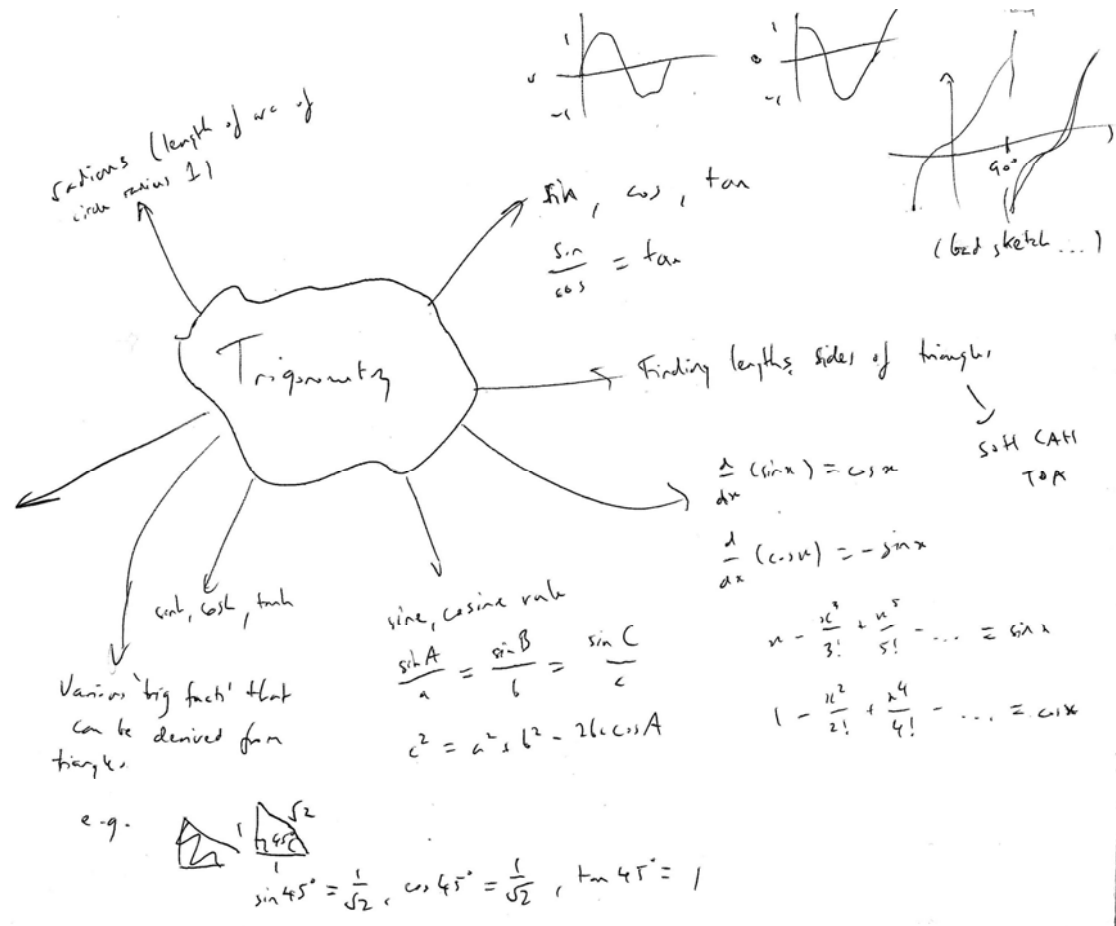 1
-1
1
0
-1
90°
(bad sketch ...)
radians (length of arc of
circle radius 1)
sin, cos, tan
sin/cos = tan
Trigonometry
Finding lengths, sides of triangles
SOH CAH
TOA
d/dx (sin x) = cos x
d/dx (cos x) = - sin x
x - x³/3! + x⁵/5! - ... = sin x
1 - x²/2! + x⁴/4! - ... = cos x
sinh, cosh, tanh
sine, cosine rule
sin A/a = sin B/b = sin C/c
c² = a² + b² - 2bc cos A
Various 'trig facts' that
can be derived from
triangles
e.g.
1
√2
45°
1
sin 45° = 1/√2, cos 45° = 1/√2, tan 45° = 1